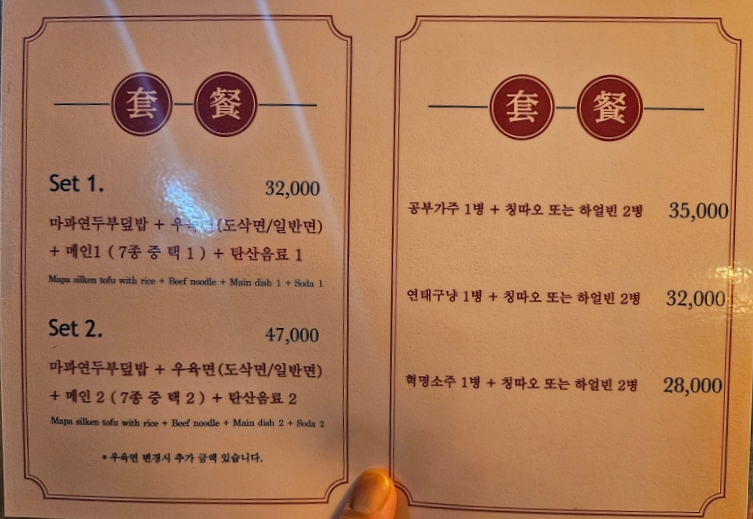 套 餐
Set 1. 32,000
마파연두부덮밥 + 우육면(도삭면/일반면)
+ 메인1 ( 7종 중 택 1 ) + 탄산음료 1
Mapa silken tofu with rice + Beef noodle + Main dish 1 + Soda 1
Set 2. 47,000
마파연두부덮밥 + 우육면(도삭면/일반면)
+ 메인 2 ( 7종 중 택 2 ) + 탄산음료 2
Mapa silken tofu with rice + Beef noodle + Main dish 2 + Soda 2
* 우육면 변경시 추가 금액 있습니다.
套 餐
공부가주 1병 + 칭따오 또는 하얼빈 2병 35,000
연태구냥 1병 + 칭따오 또는 하얼빈 2병 32,000
혁명소주 1병 + 칭따오 또는 하얼빈 2병 28,000